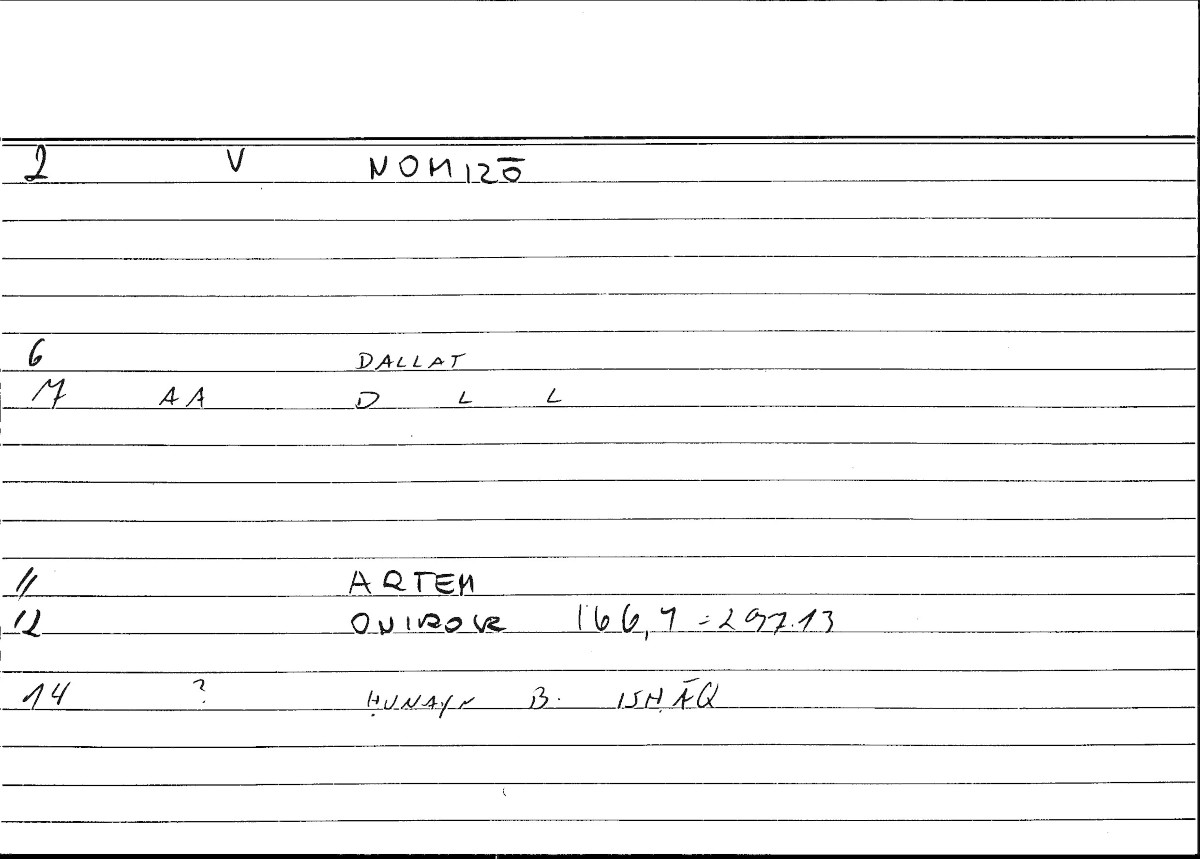 2 V NOMIZŌ
6 DALLAT
7 AA D L L
11 ARTEM
12 ONIROCR 166,7 = 297.13
14 ? ḤUNAYN B. ISḤĀQ